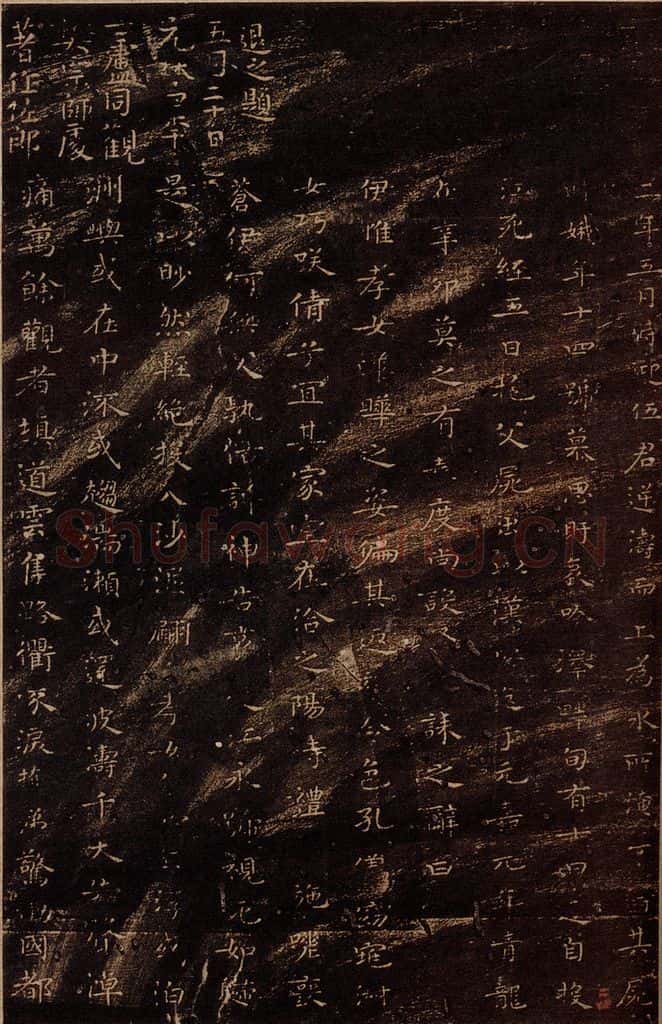 二年五月時迎伍君逆濤而上為水所淹不得其屍
娥年十四號慕思盱哀吟澤畔旬有自投
江死經五日抱父屍出以漢安迄于元嘉元年青龍
在辛卯莫之有表度尚設誄之辭曰
伊惟孝女曄之姿偏其返令色孔窈窕淑
女巧咲倩兮宜其家室在洽之陽待禮施嗟喪
蒼伊何無父孰怙訴神告哀江永號視死如歸
是以眇然輕絕投入沙泥翩孝女泊
洲嶼或在中流或趨湍瀨或還波濤千夫失聲悼
痛萬餘觀者填道雲集路衢泣淚掩涕驚慟國都
退之題
五月二十日
元和四年
二盧同觀
宗師處
著作佐郎
Shufawang.CN